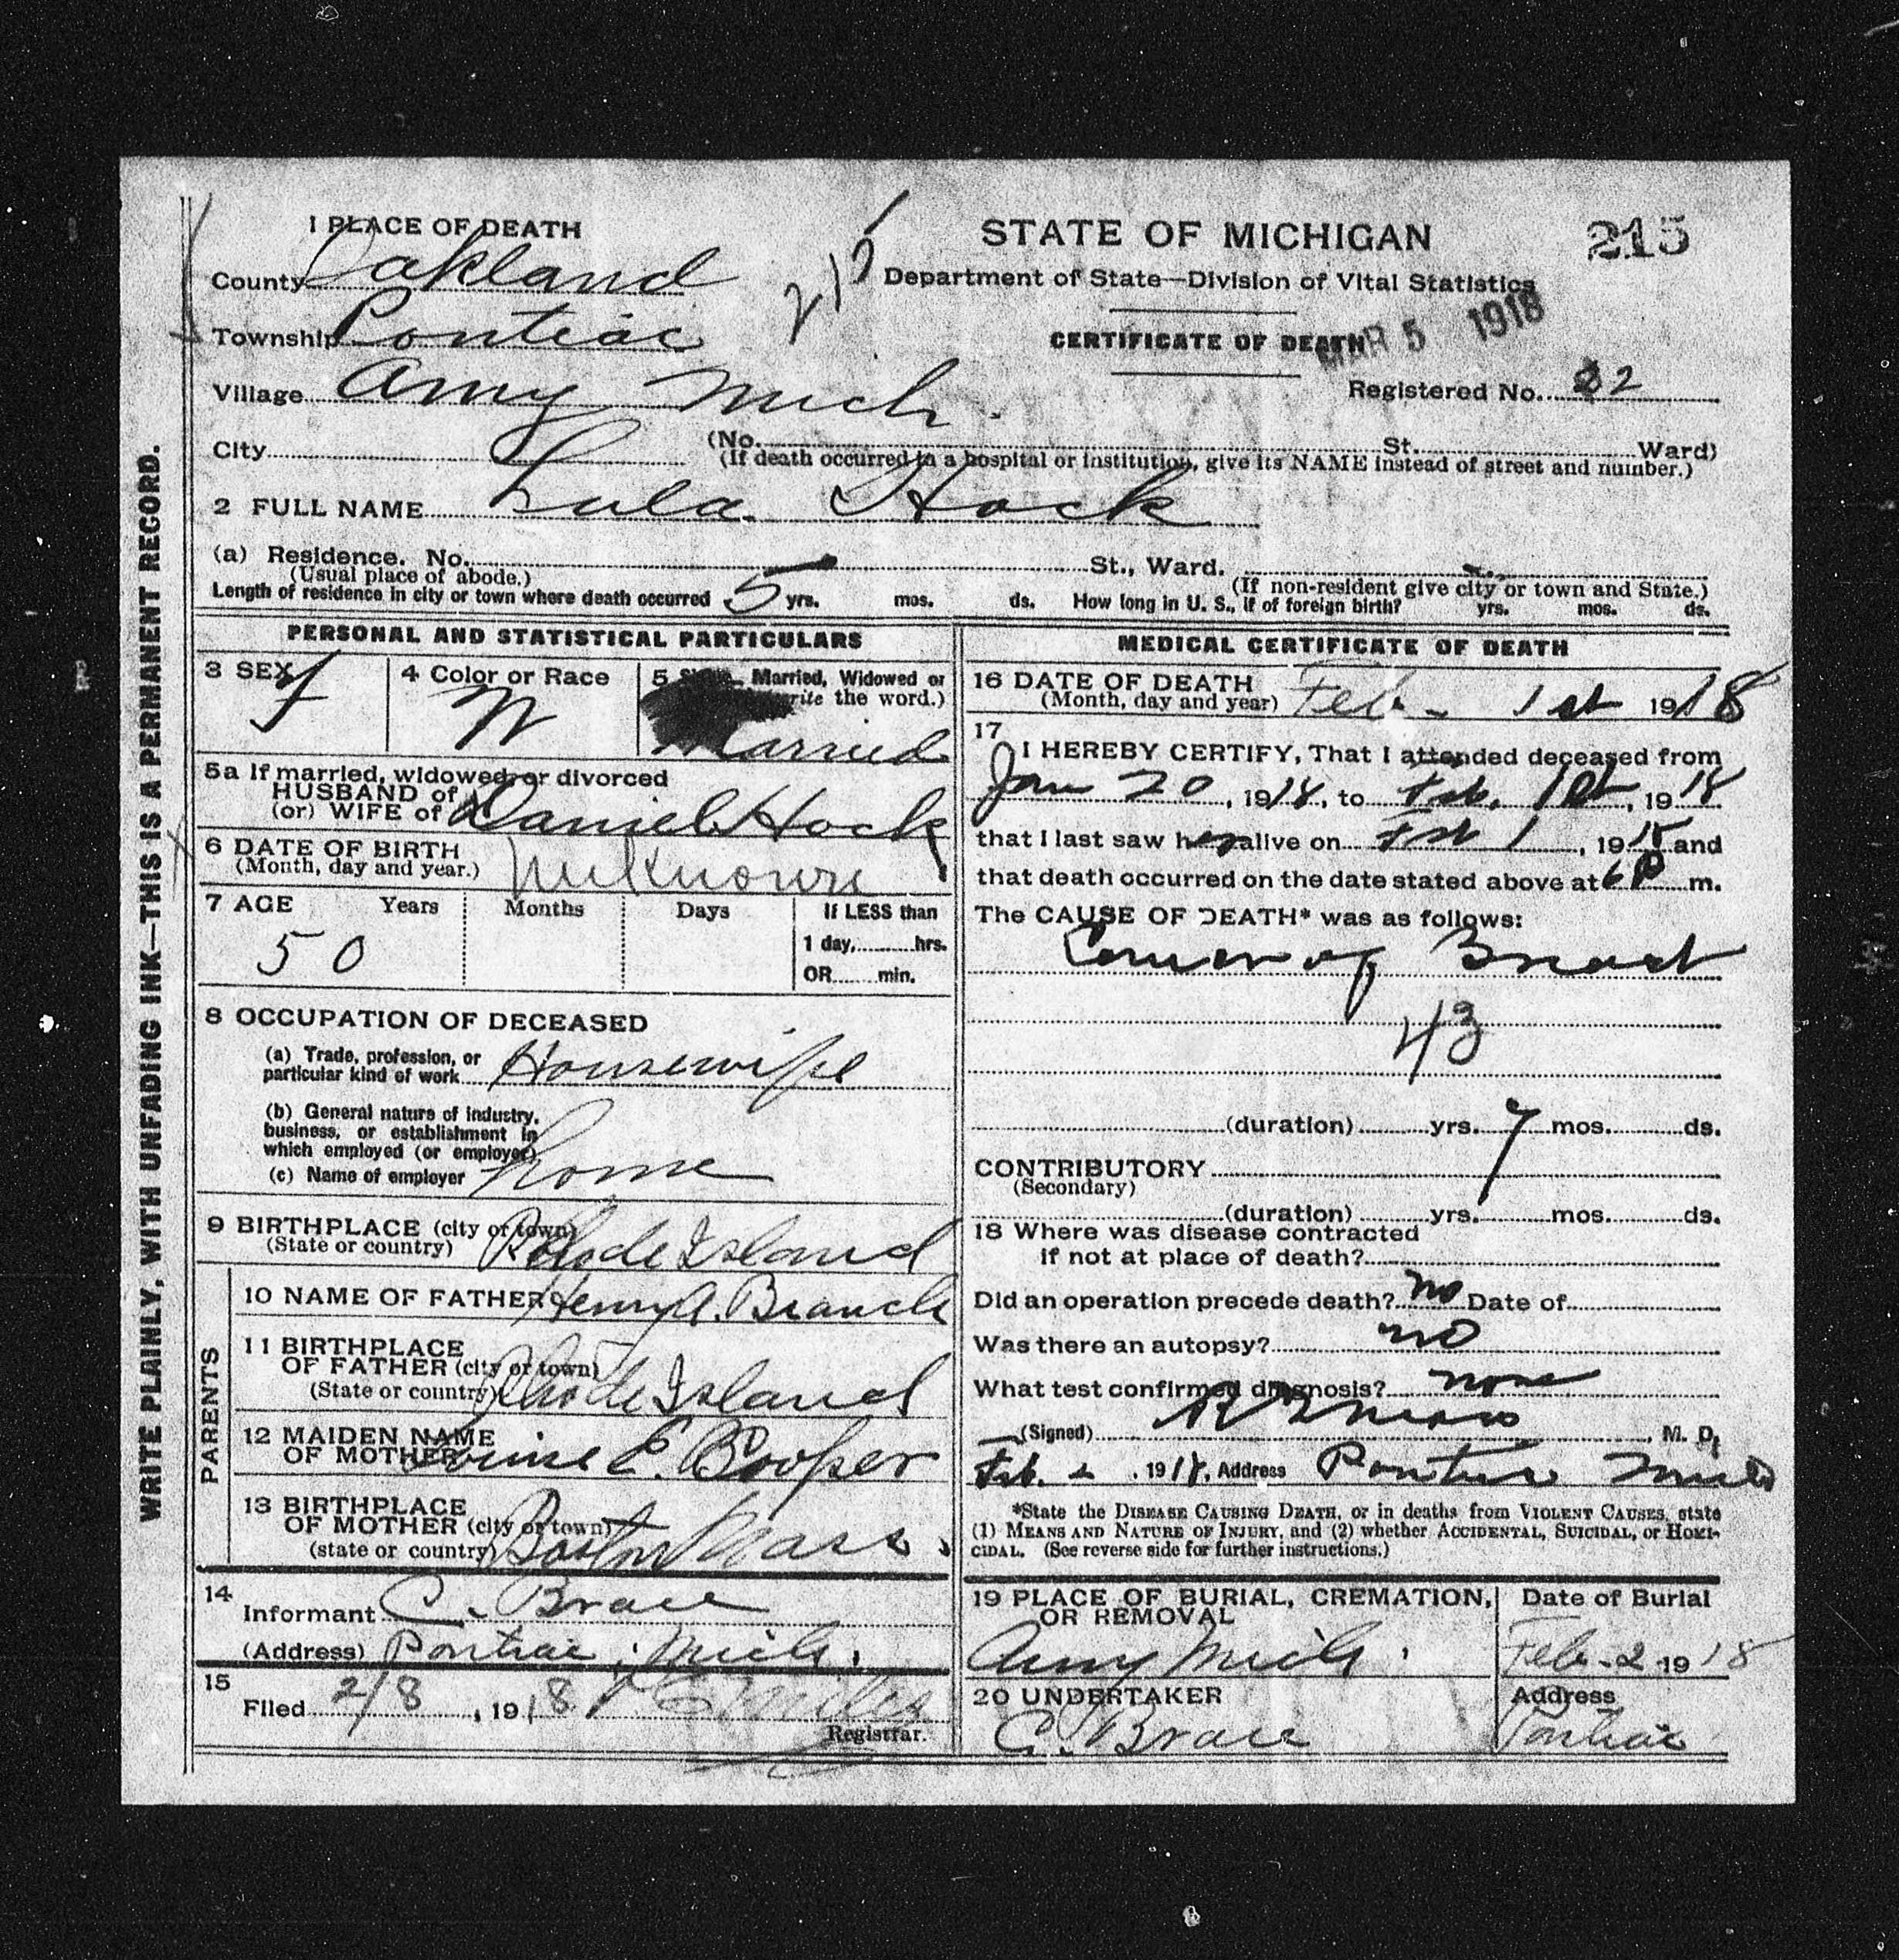 1 PLACE OF DEATH
County Oakland
Township Pontiac
Village Amy Mich.
215
STATE OF MICHIGAN
215
Department of State—Division of Vital Statistics
CERTIFICATE OF DEATH
MAR 5 1918
Registered No. 22
City (No. St. Ward)
(If death occurred in a hospital or institution, give its NAME instead of street and number.)
2 FULL NAME Lula Hock
(a) Residence. No. St., Ward.
(Usual place of abode.) (If non-resident give city or town and State.)
Length of residence in city or town where death occurred 5 yrs. mos. ds. How long in U. S., if of foreign birth? yrs. mos. ds.
WRITE PLAINLY, WITH UNFADING INK—THIS IS A PERMANENT RECORD.
PERSONAL AND STATISTICAL PARTICULARS
3 SEX
f
4 Color or Race
W
5 Married, Widowed or
write the word.)
Married
5a If married, widowed, or divorced
HUSBAND of
(or) WIFE of Daniel Hock
6 DATE OF BIRTH
(Month, day and year.) Unknown
7 AGE Years Months Days If LESS than
50
1 day, hrs.
OR min.
8 OCCUPATION OF DECEASED
(a) Trade, profession, or
particular kind of work Housewife
(b) General nature of industry,
business, or establishment in
which employed (or employer)
(c) Name of employer Home
9 BIRTHPLACE (city or town)
(State or country) Rhode Island
PARENTS
10 NAME OF FATHER Henry A. Branch
11 BIRTHPLACE
OF FATHER (city or town)
(State or country) Rhode Island
12 MAIDEN NAME
OF MOTHER E.
13 BIRTHPLACE
OF MOTHER (city or town)
(state or country) Boston Mass.
14
Informant C. Brace
(Address) Pontiac, Mich.
15
Filed 2/8, 1918
Registrar.
MEDICAL CERTIFICATE OF DEATH
16 DATE OF DEATH
(Month, day and year) Feb. 1st 1918
17
I HEREBY CERTIFY, That I attended deceased from
Jan 20, 1918, to Feb. 1st, 1918
that I last saw her alive on Feb 1, 1918 and
that death occurred on the date stated above at 6 P m.
The CAUSE OF DEATH* was as follows:
Cancer of Breast
43
(duration) yrs. 7 mos. ds.
CONTRIBUTORY
(Secondary)
(duration) yrs. mos. ds.
18 Where was disease contracted
if not at place of death?
Did an operation precede death? no Date of
Was there an autopsy? no
What test confirmed diagnosis? none
(Signed) M. D.
Feb. 2, 1918, Address Pontiac Mich
*State the DISEASE CAUSING DEATH, or in deaths from VIOLENT CAUSES, state
(1) MEANS AND NATURE OF INJURY, and (2) whether ACCIDENTAL, SUICIDAL, or HOMI-
CIDAL. (See reverse side for further instructions.)
19 PLACE OF BURIAL, CREMATION,
OR REMOVAL
Amy Mich.
Date of Burial
Feb. 2 1918
20 UNDERTAKER
C. Brace
Address
Pontiac